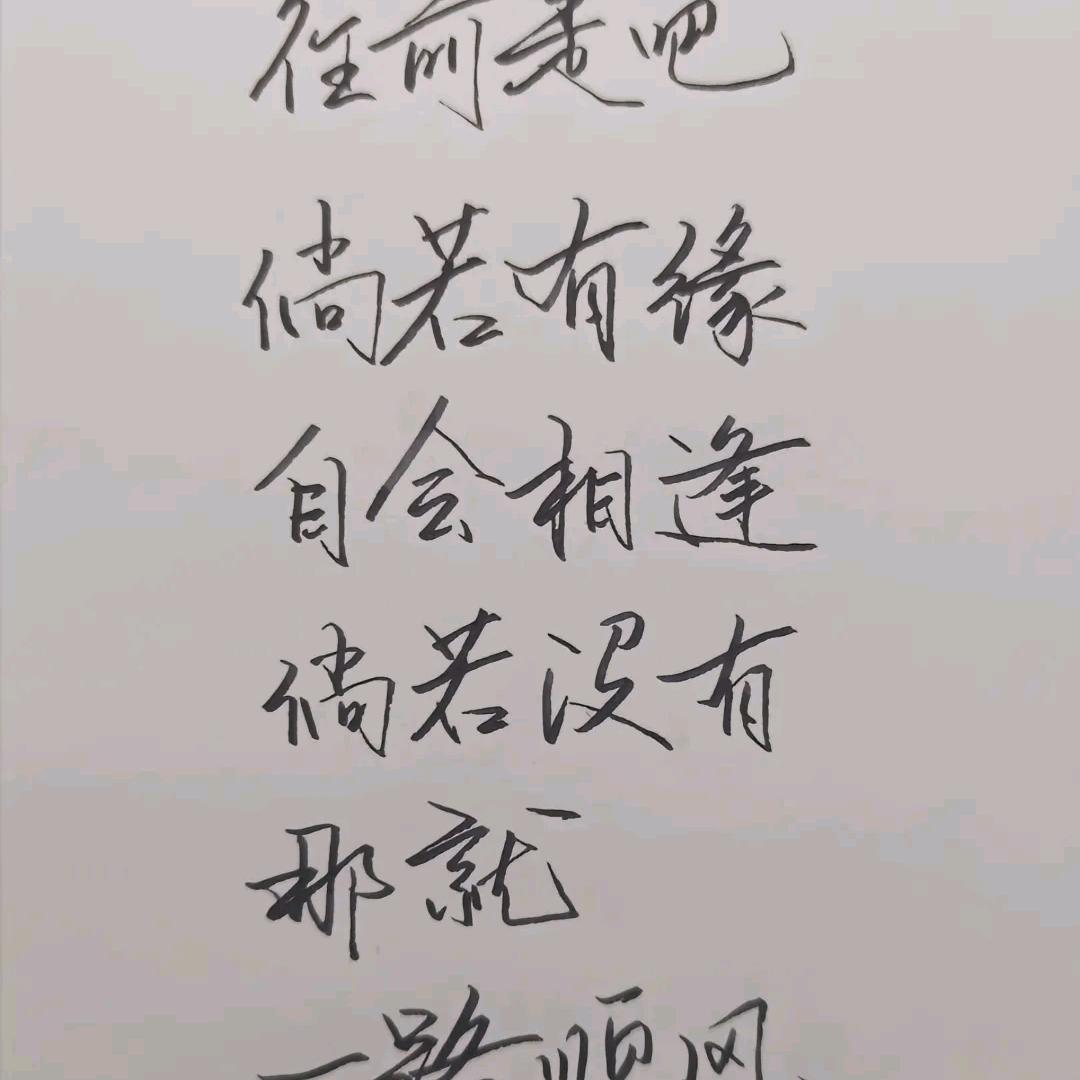 往前走吧
倘若有缘
自会相逢
倘若没有
那就
一路顺风